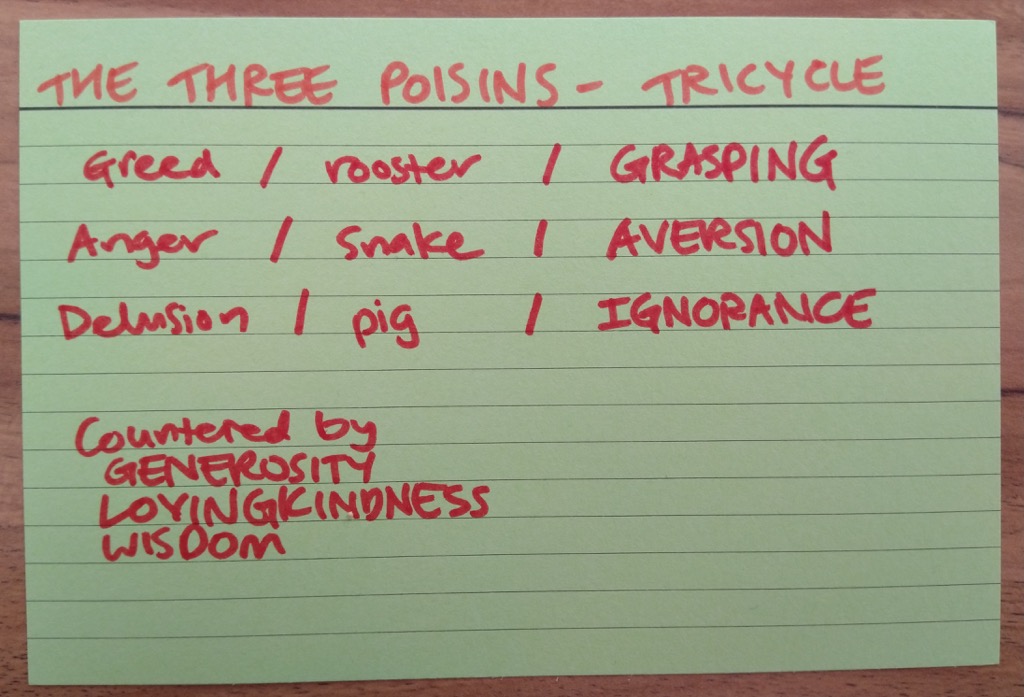 THE THREE POISINS - TRICYCLE
Greed / rooster / GRASPING
Anger / snake / AVERSION
Delusion / pig / IGNORANCE
Countered by
GENEROSITY
LOVINGKINDNESS
WISDOM